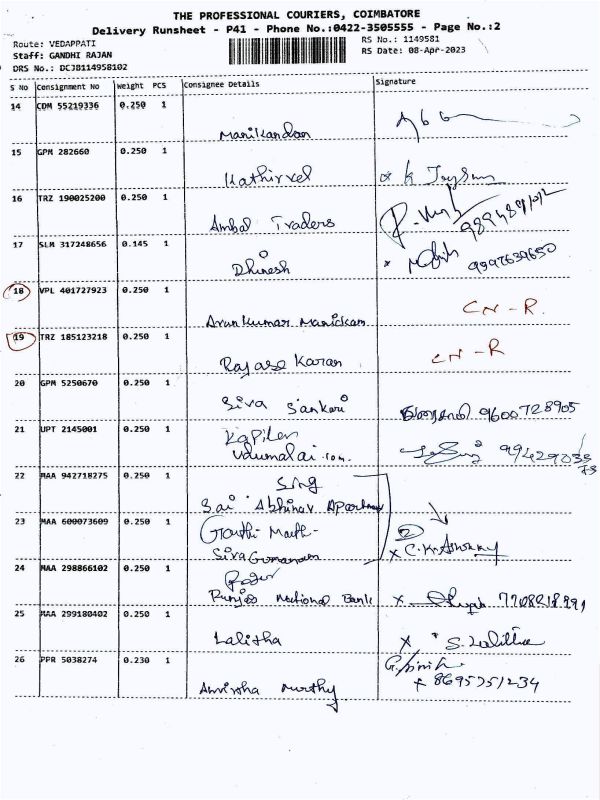 THE PROFESSIONAL COURIERS, COIMBATORE
Delivery Runsheet - P41 - Phone No.:0422-3505555 - Page No.:2
Route: VEDAPPATI
RS No.: 1149581
Staff: GANDHI RAJAN
RS Date: 08-Apr-2023
DRS No.: DCJB114958102
S No Consignment No Weight PCS Consignee Details Signature
14 CDM 55219336 0.250 1
Manikandan
15 GPM 282660 0.250 1
Kathirvel x K
16 TRZ 190025200 0.250 1
Ambal Traders
17 SLM 317248656 0.145 1
Dhinesh x
18 VPL 401727923 0.250 1
Arun Kumar Manickam CN-R.
19 TRZ 185123218 0.250 1
Rajase Karan CN-R
20 GPM 5250670 0.250 1
Siva Sankari 9600728905
21 UPT 2145001 0.250 1
Kapilen
Udumalai.com.
22 MAA 942718275 0.250 1
Sing
Sai Abhinav Apartment
23 MAA 600073609 0.250 1
2
x
24 MAA 298866102 0.250 1
National Bank x
25 MAA 299180402 0.250 1
Lalitha x S. Lalitha
26 PPR 5038274 0.230 1
Murthy